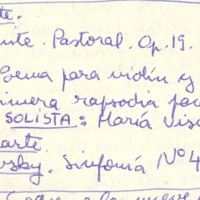 te.
nte. Pastoral. Op. 19.
oema para violín y
imera rapsodia pa
SOLISTA: María Vis
arte
vsky. Sinfonía Nº 4